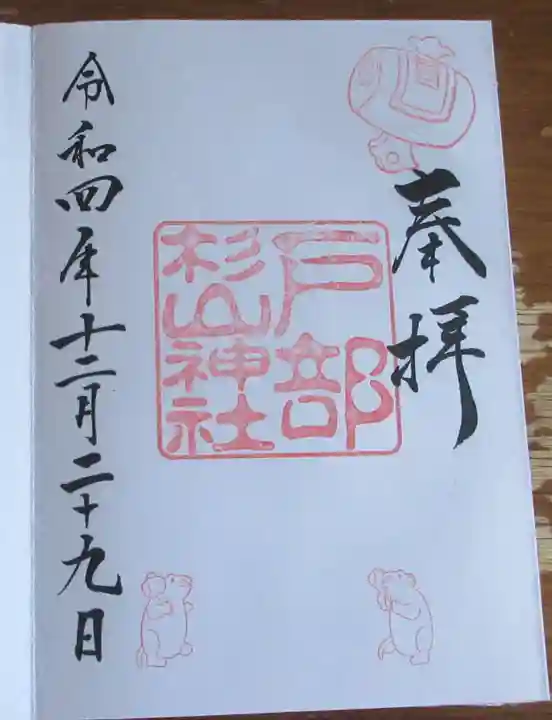 奉拝
戸部
杉山神社
令和四年十二月二十九日